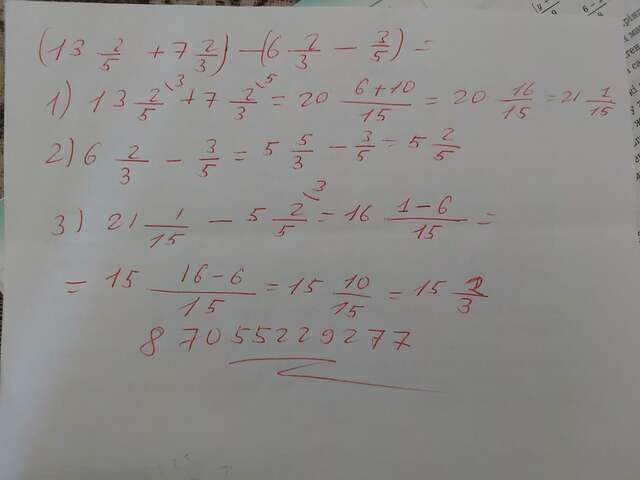 (13 2/5 + 7 2/3) - (6 2/3 - 3/5) =
1) 13 2/5 \3 + 7 2/3 \5 = 20 6+10/15 = 20 16/15 = 21 1/15
2) 6 2/3 - 3/5 = 5 5/3 - 3/5 = 5 2/5
3) 21 1/15 - 5 2/5 \3 = 16 1-6/15 =
= 15 16-6/15 = 15 10/15 = 15 2/3
8 705 522 9277